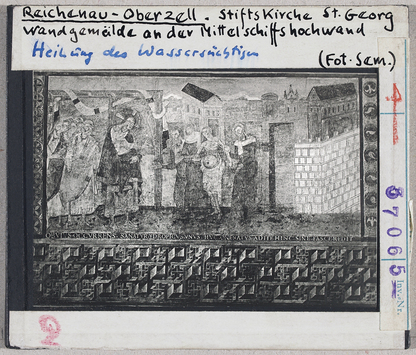 Reichenau-Oberzell. Stiftskirche St. Georg
Wandgemälde an der Mittelschiffshochwand
Heilung des Wassersüchtigen
(Fot. Sem.)
Inv.-Nr.
67065
2